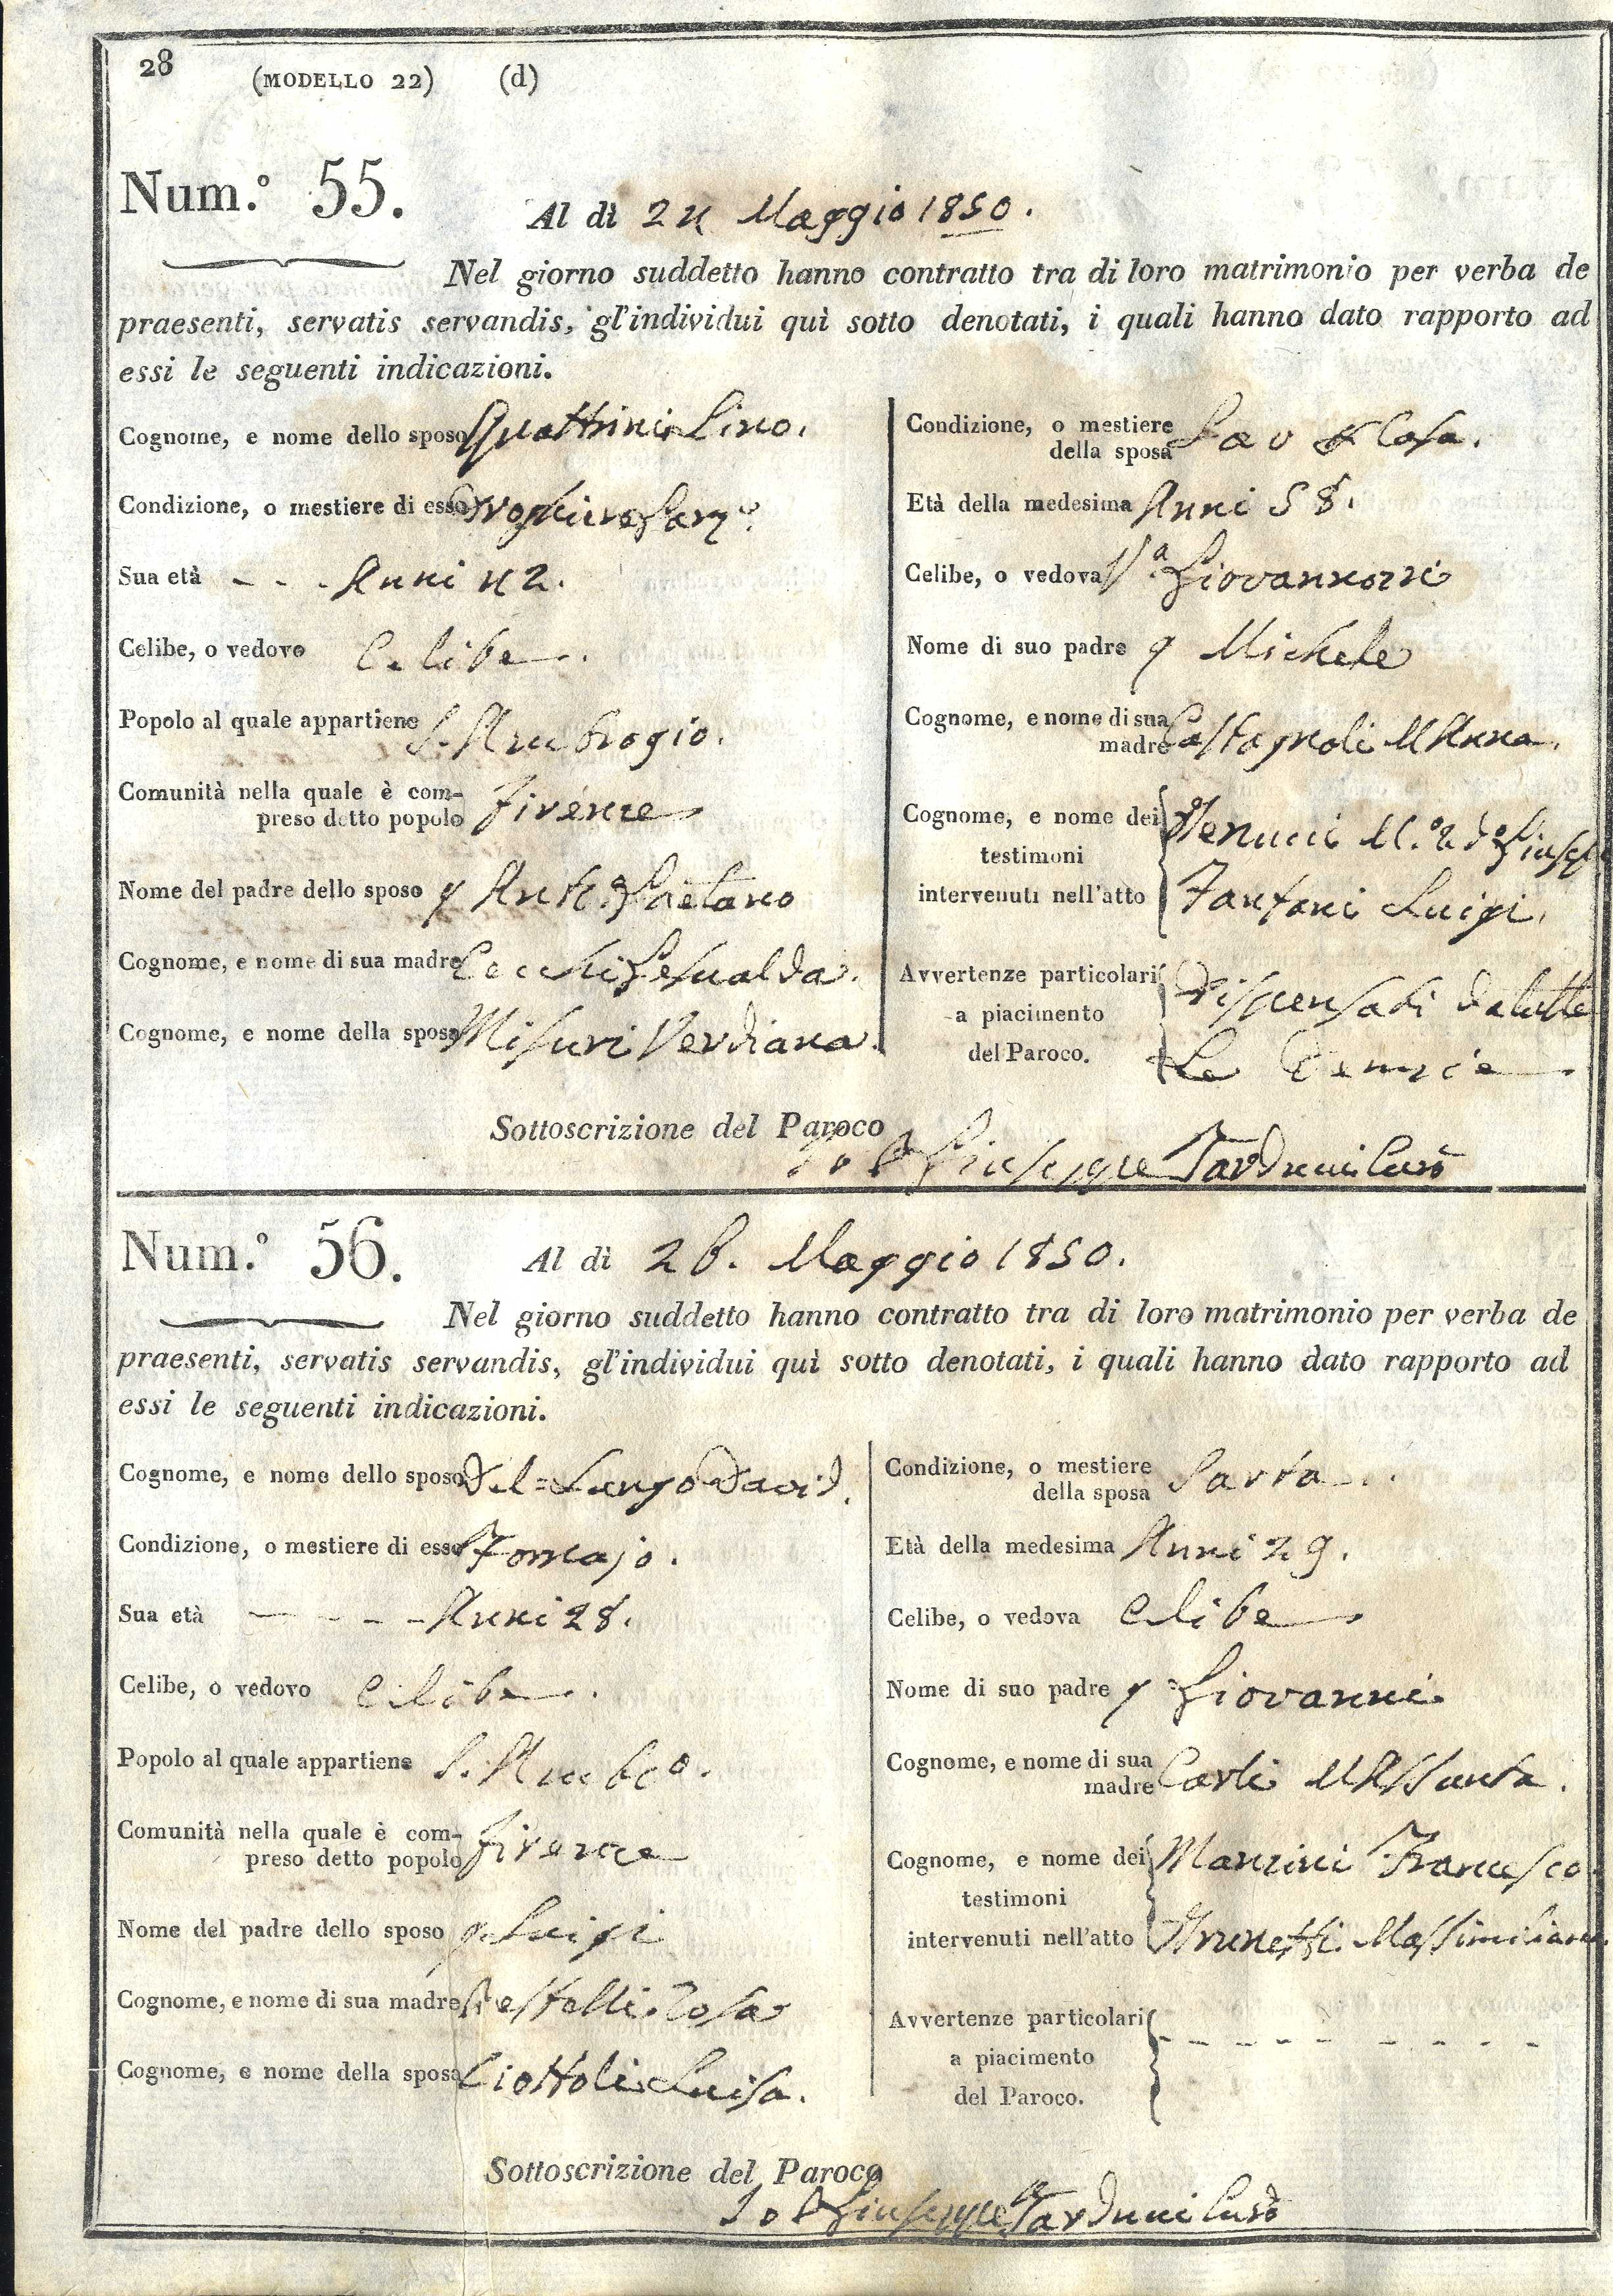 28 (MODELLO 22) (d)
Num.° 55.
Al dì 24 Maggio 1850.
Nel giorno suddetto hanno contratto tra di loro matrimonio per verba de
praesenti, servatis servandis, gl'individui quì sotto denotati, i quali hanno dato rapporto ad
essi le seguenti indicazioni.
Cognome, e nome dello sposo Quattrini Lino.
Condizione, o mestiere di esso
Sua età - - - Anni 42.
Celibe, o vedovo Celibe.
Popolo al quale appartiene S. Ambrogio.
Comunità nella quale è com-
preso detto popolo Firenze
Nome del padre dello sposo q Ant.° Gaetano
Cognome, e nome di sua madre Cecchi Gesualda.
Cognome, e nome della sposa Misuri Verdiana.
Condizione, o mestiere
della sposa Casa.
Età della medesima Anni 58.
Celibe, o vedova V.a Giovannozzi
Nome di suo padre q Michele
Cognome, e nome di sua
madre Castagnoli M Anna.
Cognome, e nome dei
testimoni
intervenuti nell'atto Fantoni Luigi.
Avvertenze particolari Dispensati da tutte
a piacimento
del Paroco. Le Denunzie
Sottoscrizione del Paroco
Io P Giuseppe Tarduci Curo
Num.° 56.
Al dì 26. Maggio 1850.
Nel giorno suddetto hanno contratto tra di loro matrimonio per verba de
praesenti, servatis servandis, gl'individui quì sotto denotati, i quali hanno dato rapporto ad
essi le seguenti indicazioni.
Cognome, e nome dello sposo Del=Lungo David.
Condizione, o mestiere di esso Fornajo.
Sua età - - - - Anni 28.
Celibe, o vedovo Celibe.
Popolo al quale appartiene S. Ambo.
Comunità nella quale è com-
preso detto popolo Firenze
Nome del padre dello sposo q Luigi
Cognome, e nome di sua madre Rosa
Cognome, e nome della sposa Ciottoli Luisa.
Condizione, o mestiere
della sposa Sarta.
Età della medesima Anni 29.
Celibe, o vedova Celibe
Nome di suo padre q Giovanni
Cognome, e nome di sua
madre Carli M Assunta.
Cognome, e nome dei Manzini Francesco
testimoni
intervenuti nell'atto Brunetti Massimiliano.
Avvertenze particolari - - - - - - - -
a piacimento
del Paroco.
Sottoscrizione del Paroco
Io P Giuseppe Tarduci Curo